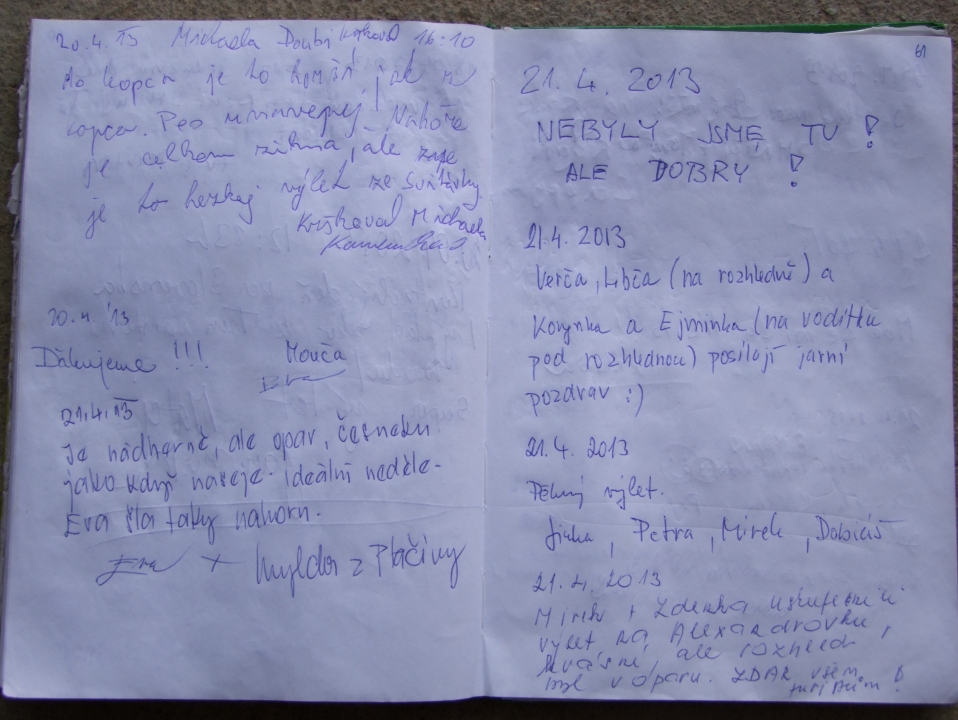 20.4.13 Michaela 16:10
do kopca je to horší, jak z
kopca. Peo unavenej. Nahoře
je celkom zihma, ale zase
je to hezkej výlet ze Svitávky
Michaela
20.4.'13
Děkujeme !!! Mouča
21.4.13
Je nádherně, ale opar, česneku
jako když naseje. ideální neděle.
Eva šla taky nahoru.
Eva + z Ptačiny
61
21.4.2013
NEBYLY JSME TU !
ALE DOBRY !
21.4.2013
Verča, Libča (na rozhledně) a
Korynka a Ejminka (na vodítku
pod rozhlednou) posílají jarní
pozdrav :)
21.4.2013
Pěkný výlet.
Jirka, Petra, Mirek, Dobiáš
21.4.2013
Mirek + Zdenka uskutečnili
výlet na Alexandrovku,
krásné, ale rozhled
byl v oparu. ZDAR všem
turistům !